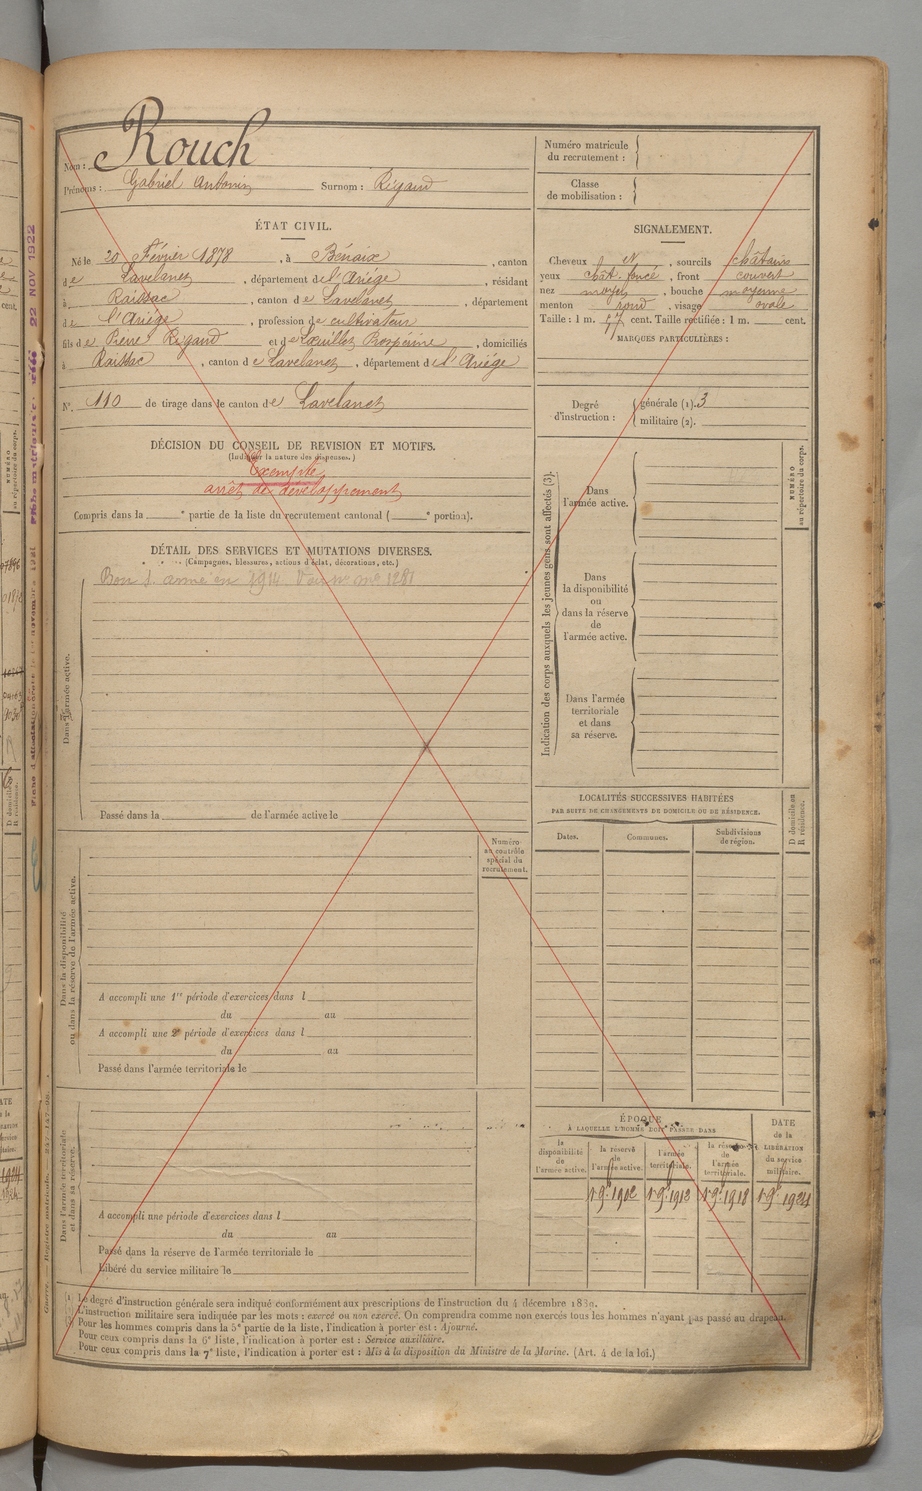 Nom : Rouch
Prénoms : Gabriel Antonin Surnom : Rigaud
ÉTAT CIVIL.
Né le 20 Février 1878, à Bénaix, canton
de Lavelanet, département de l'Ariège, résidant
à Raissac, canton de Lavelanet, département
de l'Ariège, profession de cultivateur
fils de Pierre Rigaud et de Prospérine, domiciliés
à Raissac, canton de Lavelanet, département de l'Ariège
N° 110 de tirage dans le canton de Lavelanet
DÉCISION DU CONSEIL DE REVISION ET MOTIFS.
(Indiquer la nature des dispenses.)
Exempté
arrêt de développement
Compris dans la ° partie de la liste du recrutement cantonal ( ° portion).
DÉTAIL DES SERVICES ET MUTATIONS DIVERSES.
(Campagnes, blessures, actions d'éclat, décorations, etc.)
Bon S. armé en 1914 Voir n° m° 1281
Dans l'armée active.
Passé dans la de l'armée active le
Numéro
au contrôle
spécial du
recrutement.
Dans la disponibilité
ou dans la réserve de l'armée active.
A accompli une 1re période d'exercices dans l
du au
A accompli une 2e période d'exercices dans l
du au
Passé dans l'armée territoriale le
Dans l'armée territoriale
et dans sa réserve.
A accompli une période d'exercices dans l
du au
Passé dans la réserve de l'armée territoriale le
Libéré du service militaire le
Numéro matricule
du recrutement :
Classe
de mobilisation :
SIGNALEMENT.
Cheveux et, sourcils châtains
yeux chât. foncé, front couvert
nez moyen, bouche moyenne
menton rond, visage ovale
Taille : 1 m. 57 cent. Taille rectifiée : 1 m. cent.
MARQUES PARTICULIÈRES :
Degré
d'instruction :
générale (1). 3
militaire (2).
Indication des corps auxquels les jeunes gens sont affectés (3).
Dans
l'armée active.
NUMÉRO
au répertoire du corps.
Dans
la disponibilité
ou
dans la réserve
de
l'armée active.
Dans l'armée
territoriale
et dans
sa réserve.
LOCALITÉS SUCCESSIVES HABITÉES
PAR SUITE DE CHANGEMENTS DE DOMICILE OU DE RÉSIDENCE.
Dates. Communes. Subdivisions
de région.
D domicile ou
R résidence.
ÉPOQUE
À LAQUELLE L'HOMME DOIT PASSER DANS
DATE
de la
LIBÉRATION
du service
militaire.
la
disponibilité
de
l'armée active.
la réserve
de
l'armée active.
l'armée
territoriale.
la réserve
de
l'armée
territoriale.
1 9bre 1902 1 9bre 1912 1 9bre 1918 1 9bre 1924
(1) Le degré d'instruction générale sera indiqué conformément aux prescriptions de l'instruction du 4 décembre 1889.
L'instruction militaire sera indiquée par les mots : exercé ou non exercé. On comprendra comme non exercés tous les hommes n'ayant pas passé au drapeau.
Pour les hommes compris dans la 5e partie de la liste, l'indication à porter est : Ajourné.
Pour ceux compris dans la 6e liste, l'indication à porter est : Service auxiliaire.
Pour ceux compris dans la 7e liste, l'indication à porter est : Mis à la disposition du Ministre de la Marine. (Art. 4 de la loi.)
22 NOV 1922